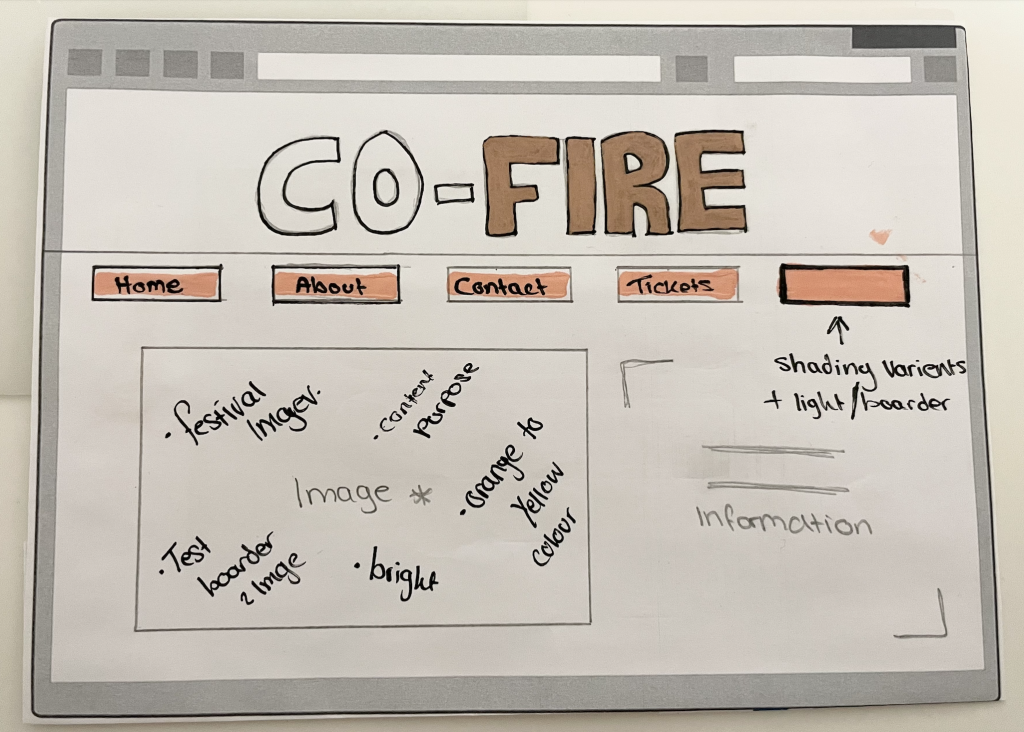 CO-FIRE
Home
About
Contact
Tickets
shading varients
+ light/boarder
• festival
Imagery.
• Content
purpose
• Orange to
Yellow
colour
Image *
• Test
boarder
2 Image
• bright
Information